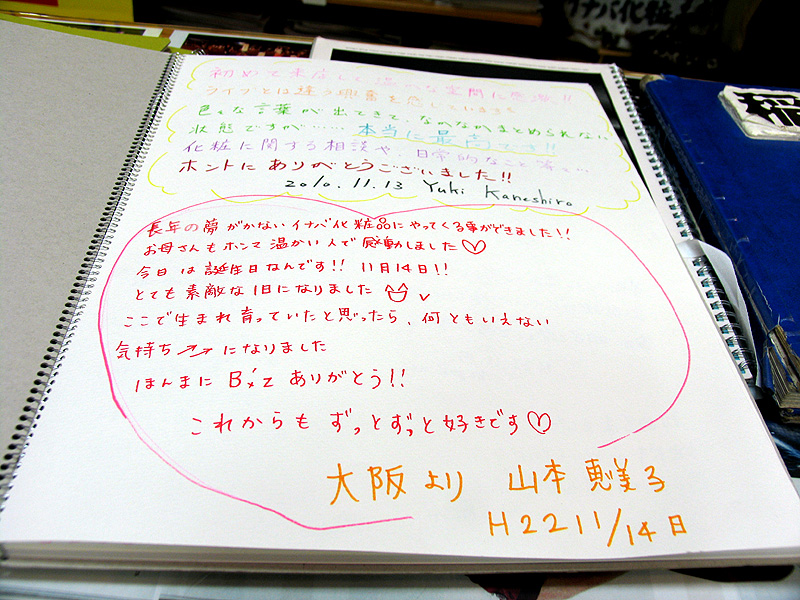 初めて来店して温かな空間に感激!!
ライブとは違う興奮を感じています
色々な言葉が出てきて、なかなかまとめられない
状態ですが……本当に最高です!!
化粧に関する相談や、日常的なこと等で…
ホントにありがとうございました!!
2010.11.13 Yuki Kaneshiro
長年の夢がかない イナバ化粧品にやってくる事ができました!!
お母さんもホンマ温かい人で感動しました♡
今日は誕生日なんです!! 11月14日!!
とても素敵な1日になりました
ここで生まれ育っていたと思ったら、何ともいえない
気持ち になりました
ほんまに B'z ありがとう!!
これからも ずっとずっと好きです♡
大阪より 山本恵美子
H22 11/14日
イナバ化粧